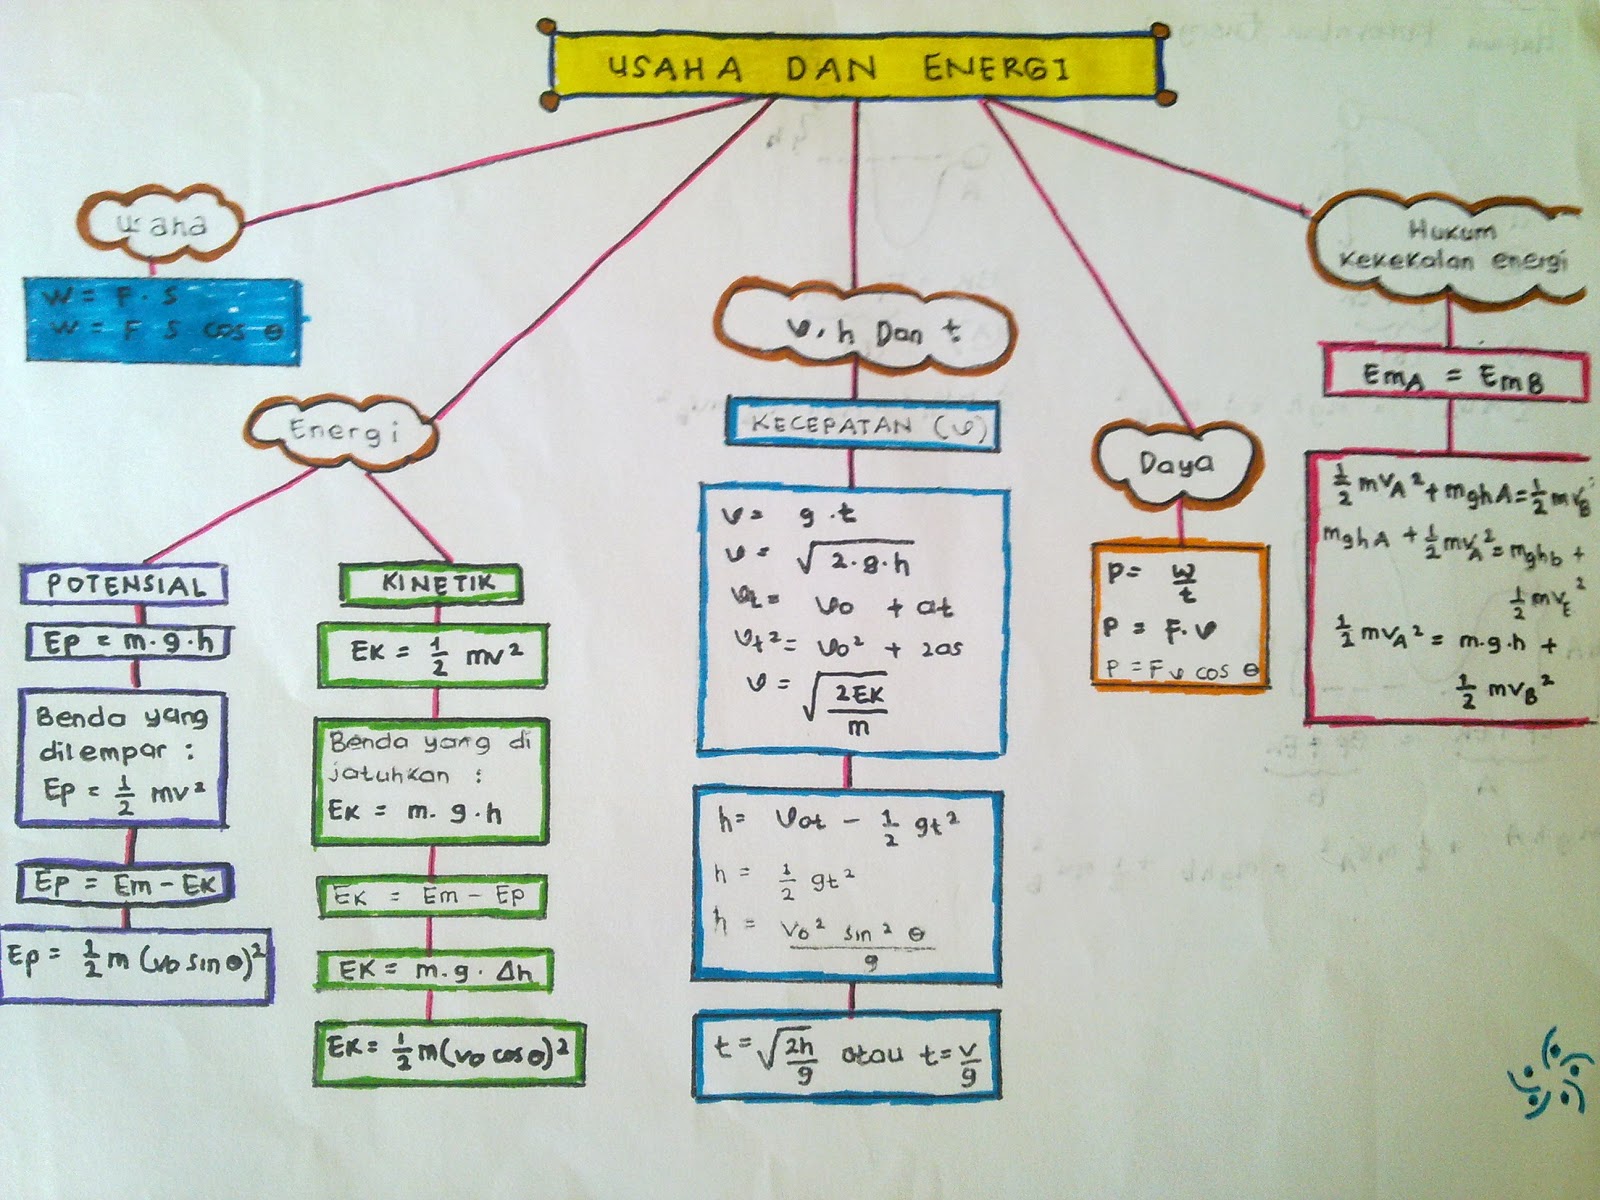 USAHA DAN ENERGI
Usaha
W = F · S
W = F S cos θ
Energi
POTENSIAL
Ep = m·g·h
Benda yang
dilempar :
Ep = 1/2 mv²
Ep = Em - Ek
Ep = 1/2 m (vo sin θ)²
KINETIK
EK = 1/2 mv²
Benda yang di
jatuhkan :
EK = m. g. h
EK = Em - Ep
EK = m.g. Δh
EK = 1/2 m (vo cos θ)²
v, h Dan t
KECEPATAN (v)
v = g . t
v = √2·g·h
vt = vo + at
vt² = vo² + 2as
v = √2EK/m
h = vot - 1/2 gt²
h = 1/2 gt²
h = vo² sin² θ / g
t = √2h/g atau t = v/g
Daya
P = W/t
P = F. v
P = F v cos θ
Hukum
kekekalan energi
EmA = EmB
1/2 mvA² + mghA = 1/2 mvB
mghA + 1/2 mvA² = mghb +
1/2 mv ²
1/2 mvA² = m.g.h +
1/2 mvB²